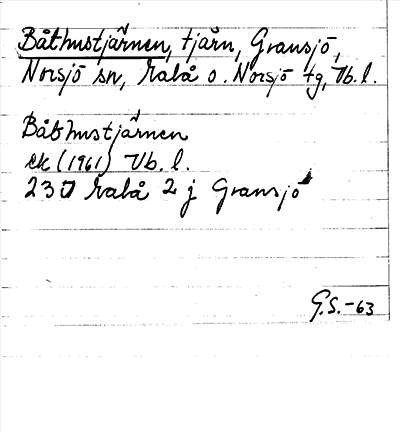 Båthustjärnen, tjärn, Gransjö,
Norsjö sn, Malå o. Norsjö tg, Vb. l.
Båthustjärnen
ek (1961) Vb. l.
23 J Malå 2 j Gransjö
G.S. -63